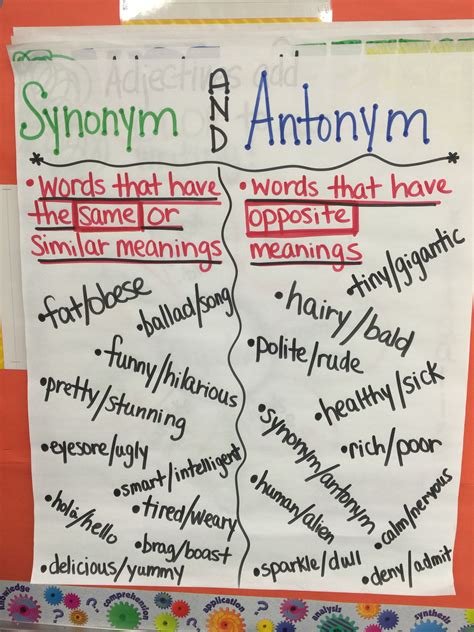 Adjectives add
Synonym AND Antonym
• Words that have
the same or
similar meanings
• fat/obese
• ballad/song
• funny/hilarious
• pretty/stunning
• eyesore/ugly
• smart/intelligent
• hola/hello
• tired/weary
• brag/boast
• delicious/yummy
• words that have
opposite
meanings
• tiny/gigantic
• hairy/bald
• polite/rude
• healthy/sick
• rich/poor
• synonym/antonym
• human/alien
• calm/nervous
• sparkle/dull
• deny/admit
knowledge
comprehension
application
analysis
synthesis